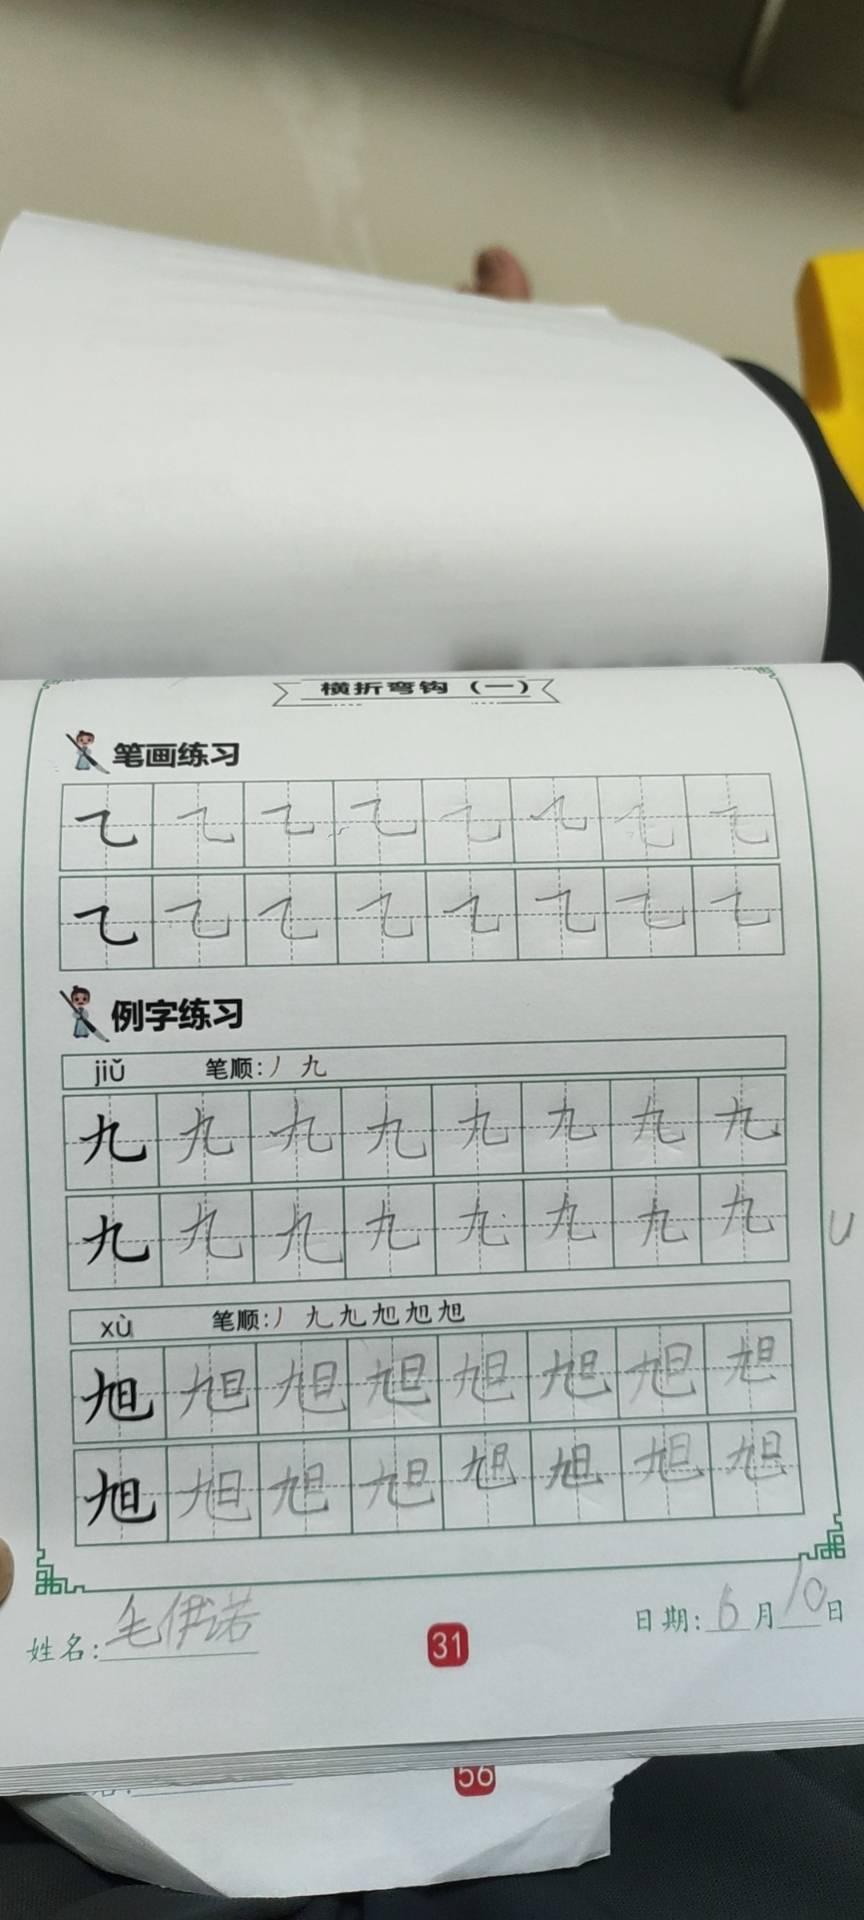 横折弯钩（一）
笔画练习
㇈ ㇈ ㇈ ㇈ ㇈ ㇈ ㇈ ㇈
㇈ ㇈ ㇈ ㇈ ㇈ ㇈ ㇈ ㇈
例字练习
jiǔ 笔顺:丿 九
九 九 九 九 九 九 九 九
九 九 九 九 九 九 九 九
xù 笔顺:丿 九 九 旭 旭 旭
旭 旭 旭 旭 旭 旭 旭 旭
旭 旭 旭 旭 旭 旭 旭 旭
姓名:毛伊诺 31 日期:6月10日
56